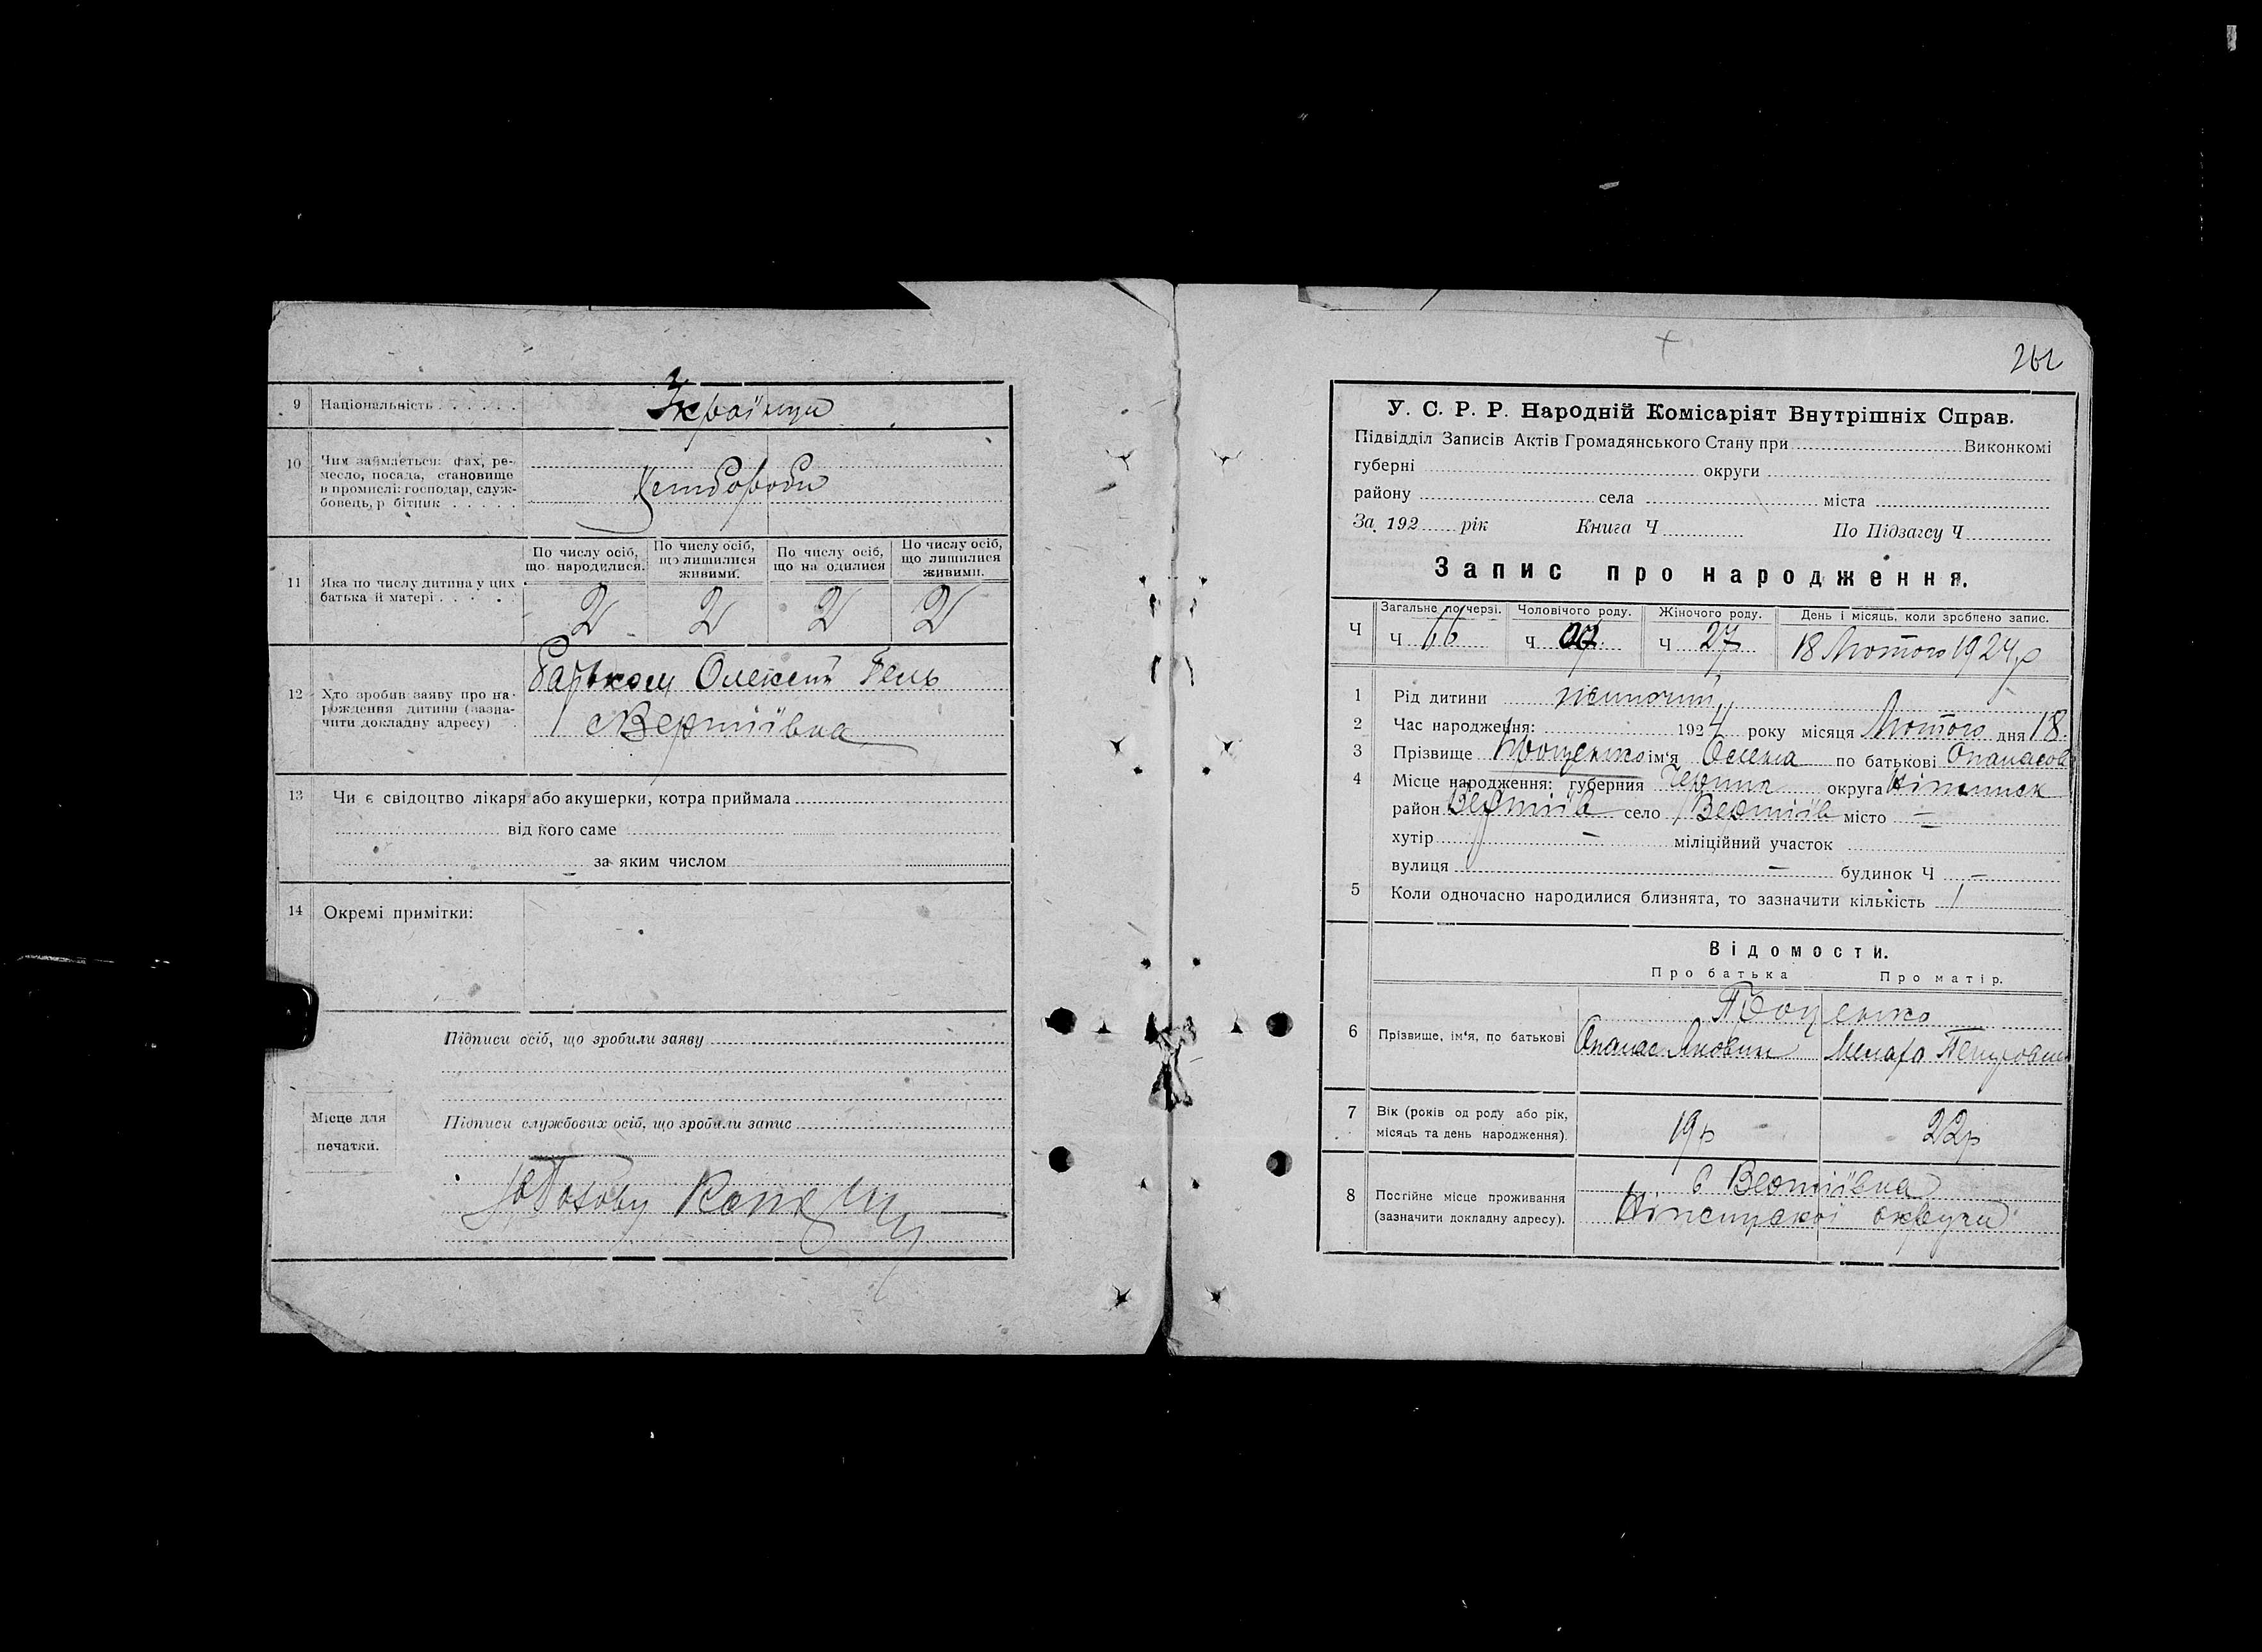 9 Національність . . . . . . Українци
10 Чим займається: фах, ре-
месло, посада, становище
в промислі: господар, служ-
бовець, р бітник . . . . . Хлібороби
11 Яка по числу дитина у цих
батька й матері . . . . .
По числу осіб, що народилися. По числу осіб, що лишилися живими. По числу осіб, що на одилися По числу осіб, що лишилися живими.
2 2 2 2
12 Хто зробив заяву про на-
рождення дитини (зазна-
чити докладну адресу)
Батьком Олексій Гель
Вертіївка
13 Чи є свідоцтво лікаря або акушерки, котра приймала
від кого саме
за яким числом
14 Окремі примітки:
Підписи осіб, що зробили заяву
Місце для
печатки.
Підписи службових осіб, що зробили запис
262
У. С. Р. Р. Народній Комісаріят Внутрішніх Справ.
Підвідділ Записів Актів Громадянського Стану при Виконкомі
губерні округи
району села міста
За 192 рік Книга Ч По Підзагсу Ч
Запис про народження.
Загальне по черзі. Чоловічого роду. Жіночого роду. День і місяць, коли зроблено запис.
Ч Ч 66 Ч Ч 27 18 Лютого 1924 р
1 Рід дитини жиночий
2 Час народження: 1924 року місяця Лютого дня 18
3 Прізвище ім'я Олена по батькові Опанасов
4 Місце народження: губерния Черниг округа Ніжинск
район Вертіїв село Вертіїв місто —
хутір — міліційний участок
вулиця — будинок Ч —
5 Коли одночасно народилися близнята, то зазначити кількість 1
Відомости.
Про батька Про матір.
6 Прізвище, ім'я, по батькові
Опанас Якович Петровна
7 Вік (років од роду або рік,
місяць та день народження). 19 р 22 р
8 Постійне місце проживання
(зазначити докладну адресу).
с Вертіївка
Ніженцкої округи